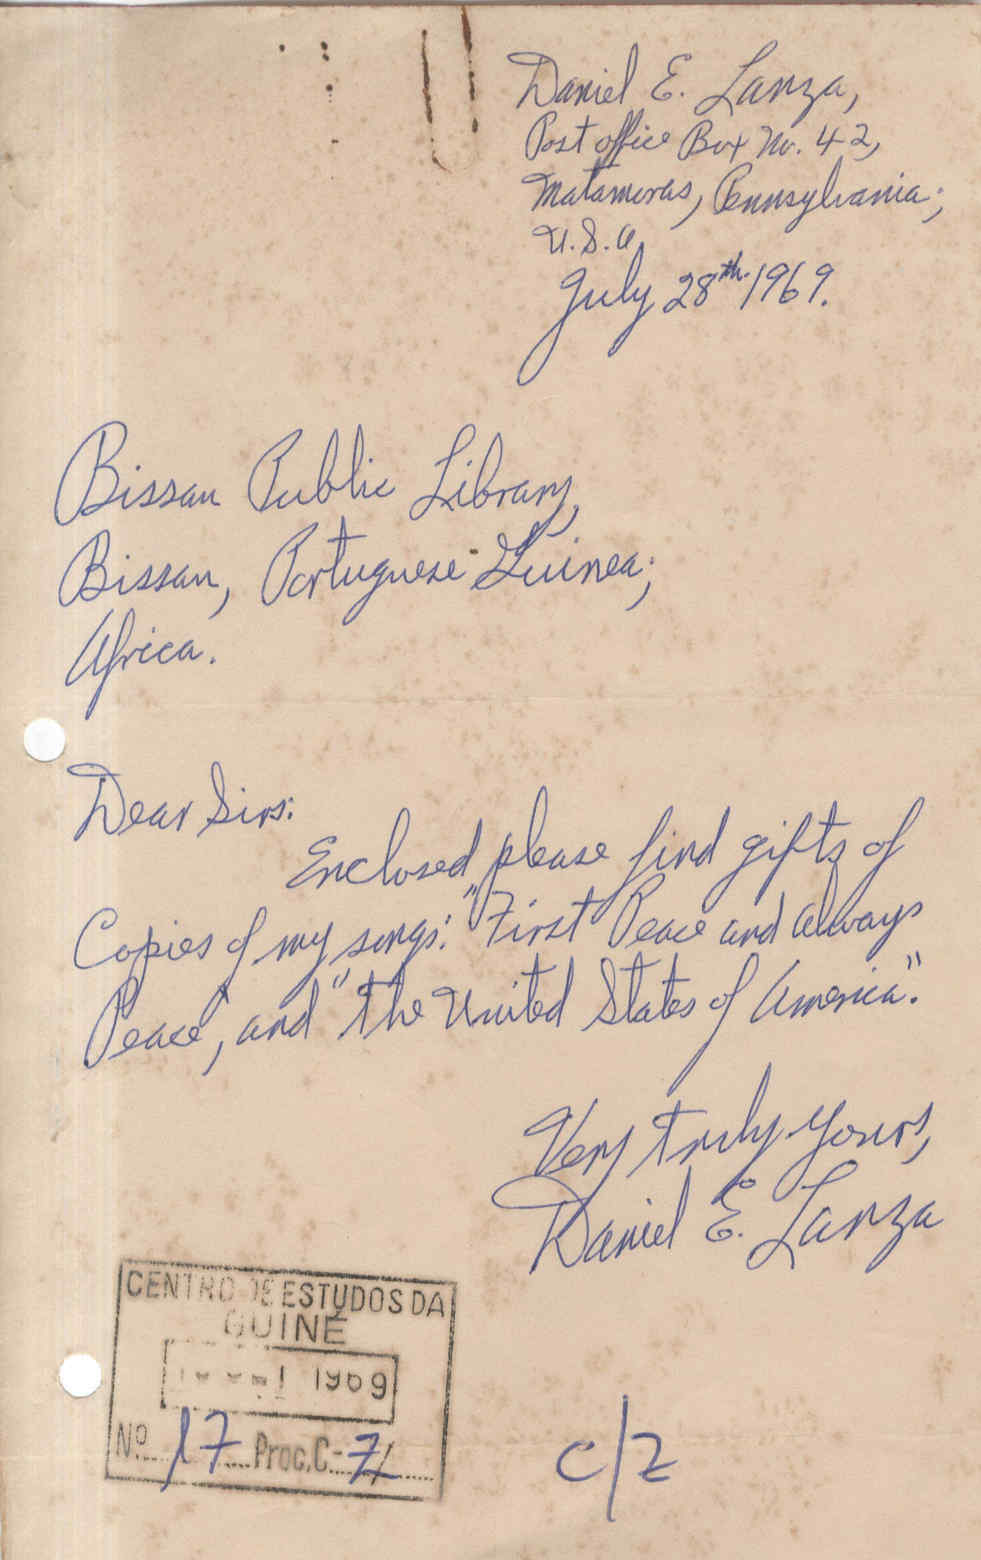 Daniel E. Lanza,
Post office Box No. 42,
Matamoras, Pennsylvania;
U.S.A.
July 28th. 1969.
Bissau Public Library,
Bissau, Portuguese Guinea;
Africa.
Dear Sirs:
Enclosed please find gifts of
Copies of my songs: "First Peace and Always
Peace", and "The United States of America".
Very truly yours,
Daniel E. Lanza
CENTRO DE ESTUDOS DA
GUINÉ
1969
Nº 17 Proc. C-
c/2